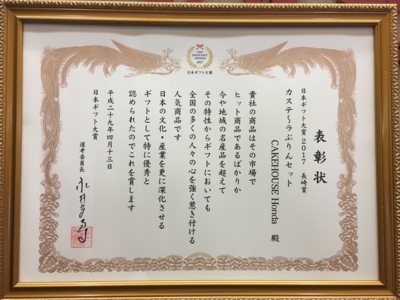 日本ギフト大賞
表彰状
日本ギフト大賞 2017 長崎賞
カステ〜ラぷりんセット
CAKEHOUSE Honda 殿
貴社の商品はその市場で
ヒット商品であるばかりか
今や地域の名産品を超えて
その特性からギフトにおいても
全国の多くの人々の心を強く惹き付ける
人気商品です
日本の文化・産業を更に深化させる
ギフトとして特に優秀と
認められたのでこれを賞します
平成二十九年四月十三日
日本ギフト大賞
選考委員長